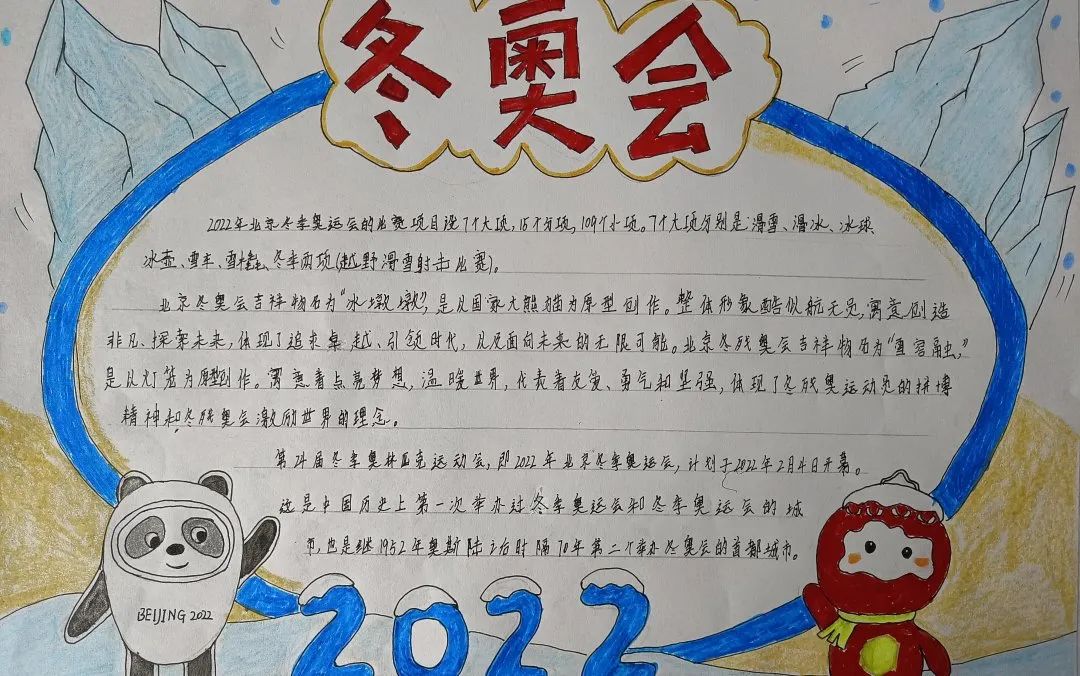 冬奥会
2022年北京冬季奥运会的比赛项目设7个大项,15个分项,109个小项。7个大项分别是:滑雪、滑冰、冰球、
冰壶、雪车、雪橇、冬季两项(越野滑雪射击比赛)。
北京冬奥会吉祥物名为“冰墩墩”,是以国家大熊猫为原型创作。整体形象酷似航天员,寓意创造
非凡、探索未来,体现了追求卓越、引领时代,以及面向未来的无限可能。北京冬残奥会吉祥物名为“雪容融”,
是以灯笼为原型创作。寓意着点亮梦想,温暖世界,代表着友爱、勇气和坚强,体现了冬残奥运动员的拼搏
精神和冬残奥会激励世界的理念。
第24届冬季奥林匹克运动会,即2022年北京冬季奥运会,计划于2022年2月4日开幕。
这是中国历史上第一次举办过冬季奥运会和冬季奥运会的城
市,也是继1952年奥斯陆之后时隔70年第二个举办冬奥会的首都城市。
BEIJING 2022
2022